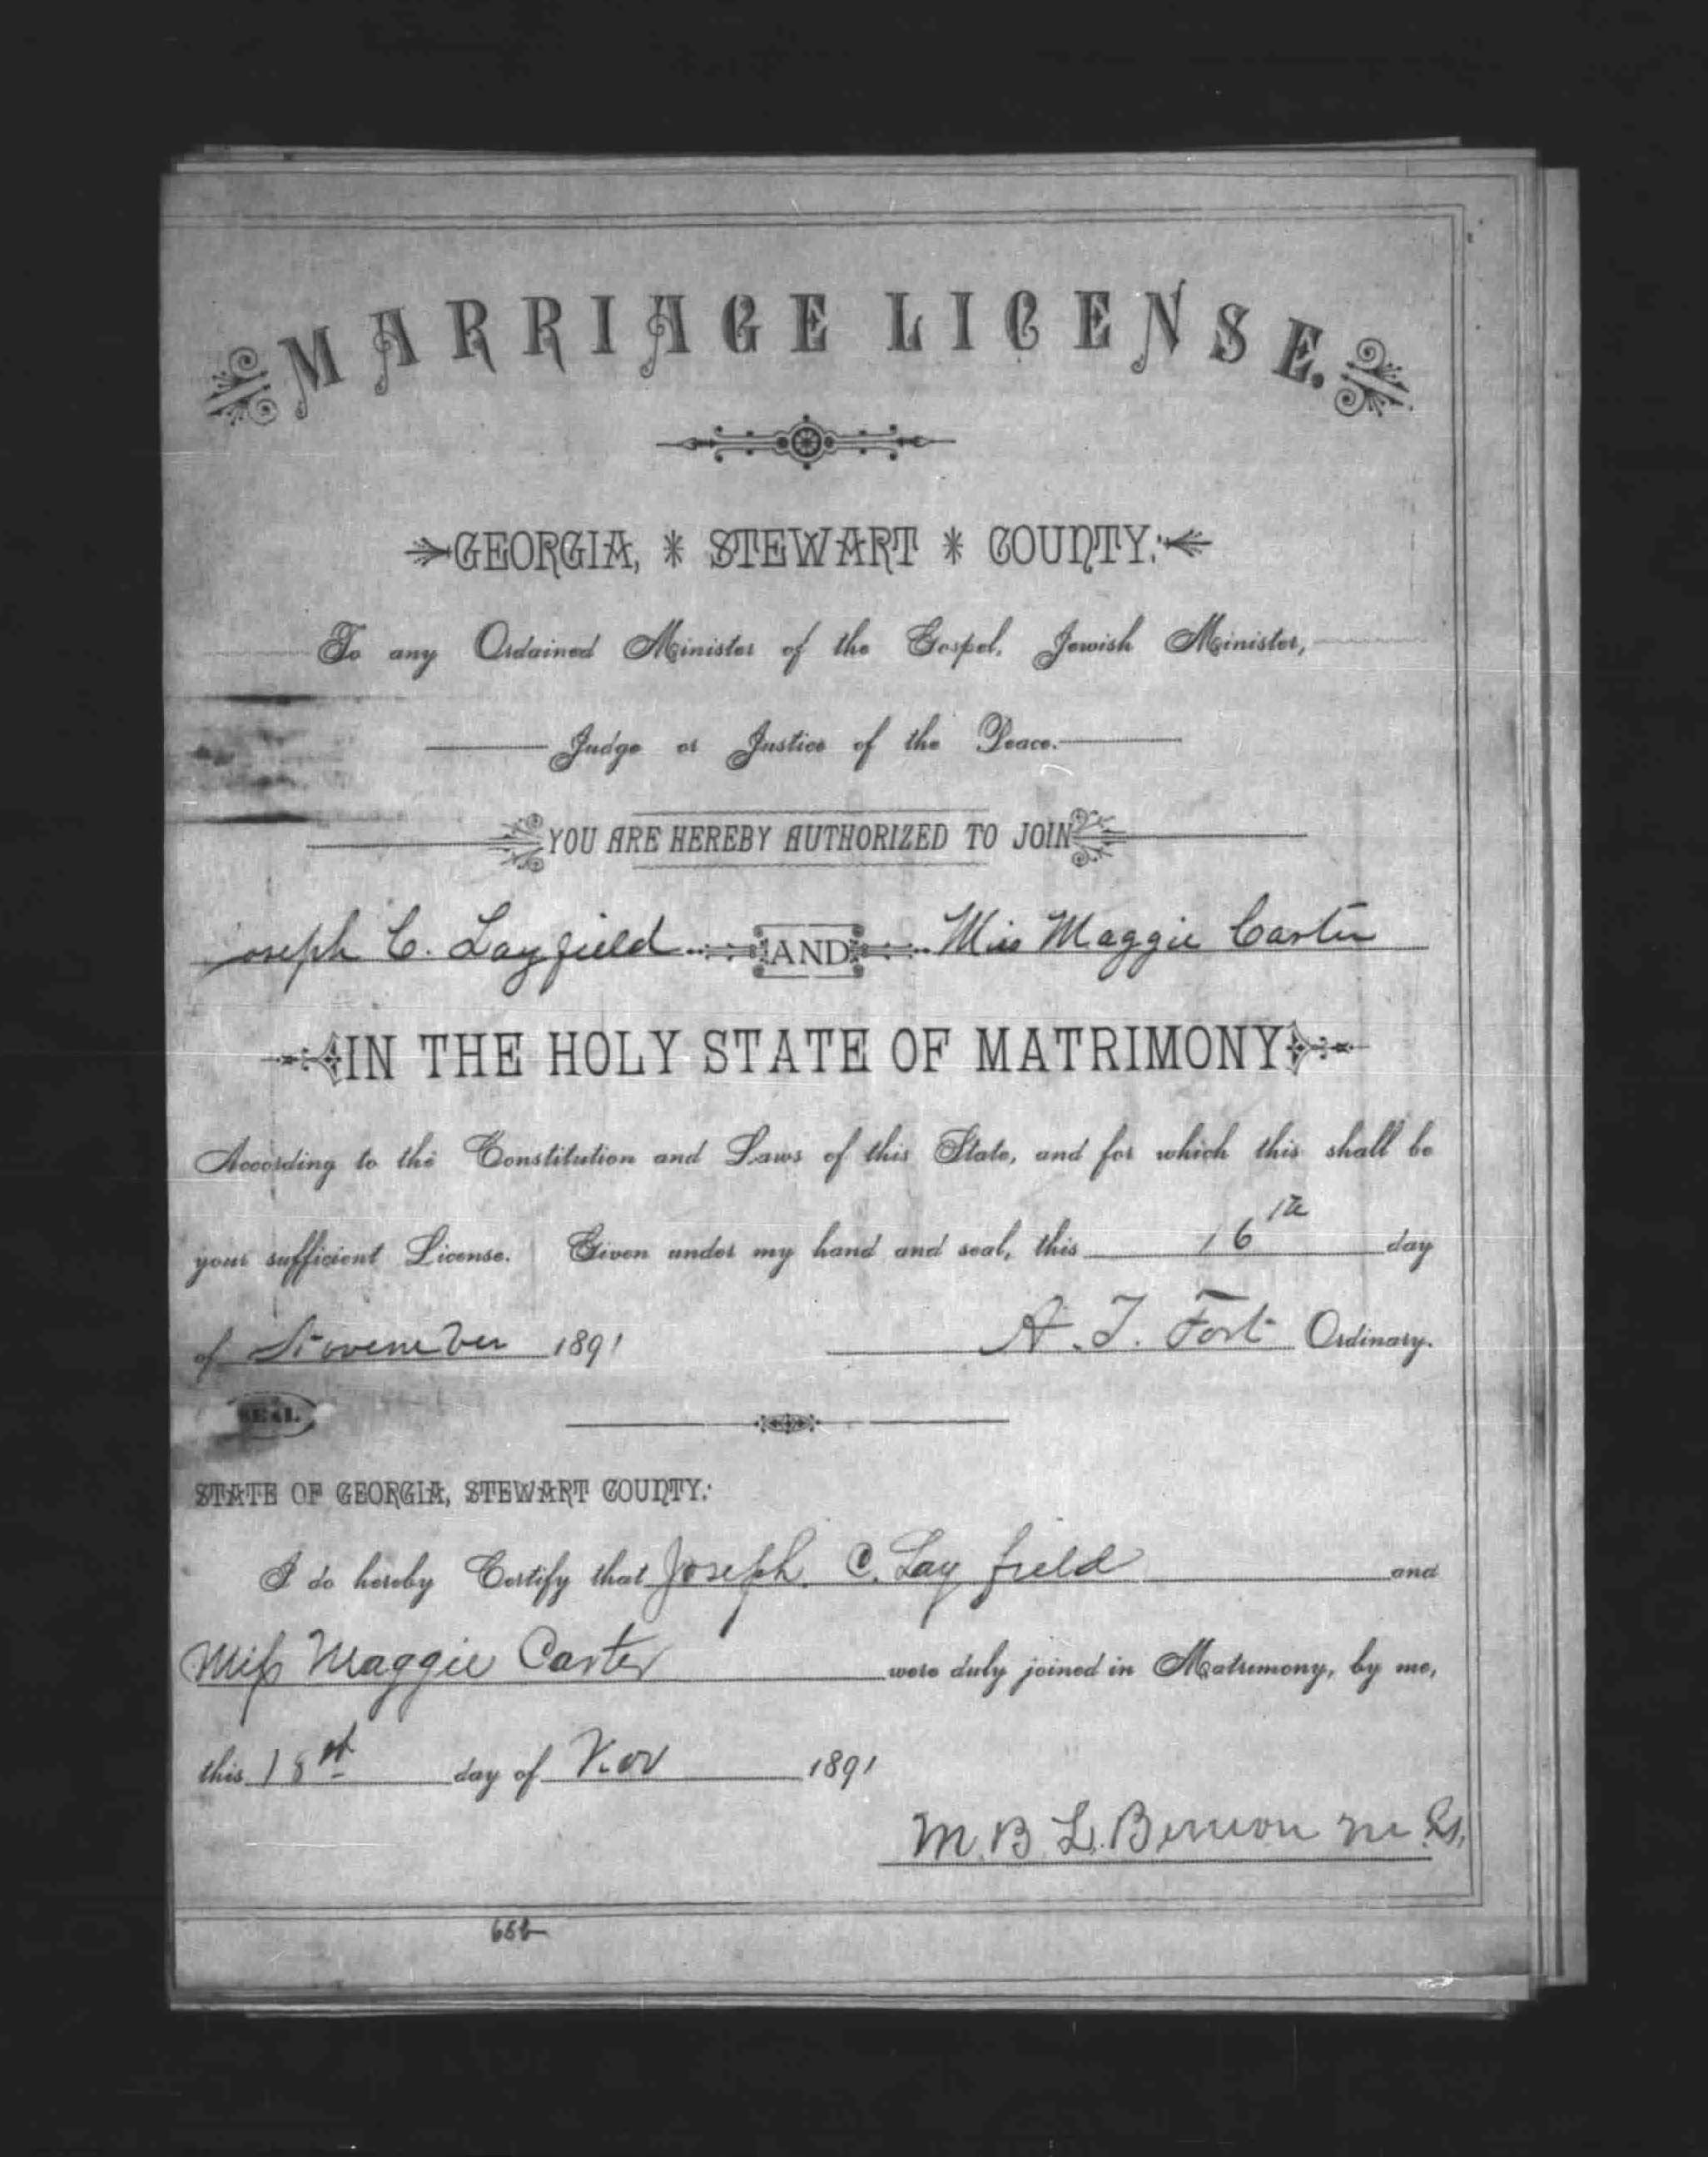 MARRIAGE LICENSE.
GEORGIA, * STEWART * COUNTY:
To any Ordained Minister of the Gospel, Jewish Minister,
Judge or Justice of the Peace.
YOU ARE HEREBY AUTHORIZED TO JOIN
Joseph C. Layfield AND Miss Maggie Carter
IN THE HOLY STATE OF MATRIMONY
According to the Constitution and Laws of this State, and for which this shall be
your sufficient License. Given under my hand and seal, this 16th day
of November 1891 A. T. Fort Ordinary.
SEAL
STATE OF GEORGIA, STEWART COUNTY:
I do hereby Certify that Joseph. C. Layfield and
Miss Maggie Carter were duly joined in Matrimony, by me,
this 18st day of Nov 1891
M. B. L. Binion